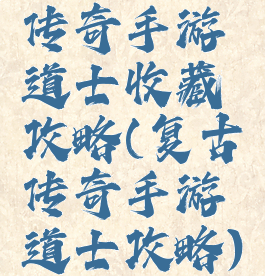 传奇手游
道士收藏
攻略(复古
传奇手游
道士攻略)